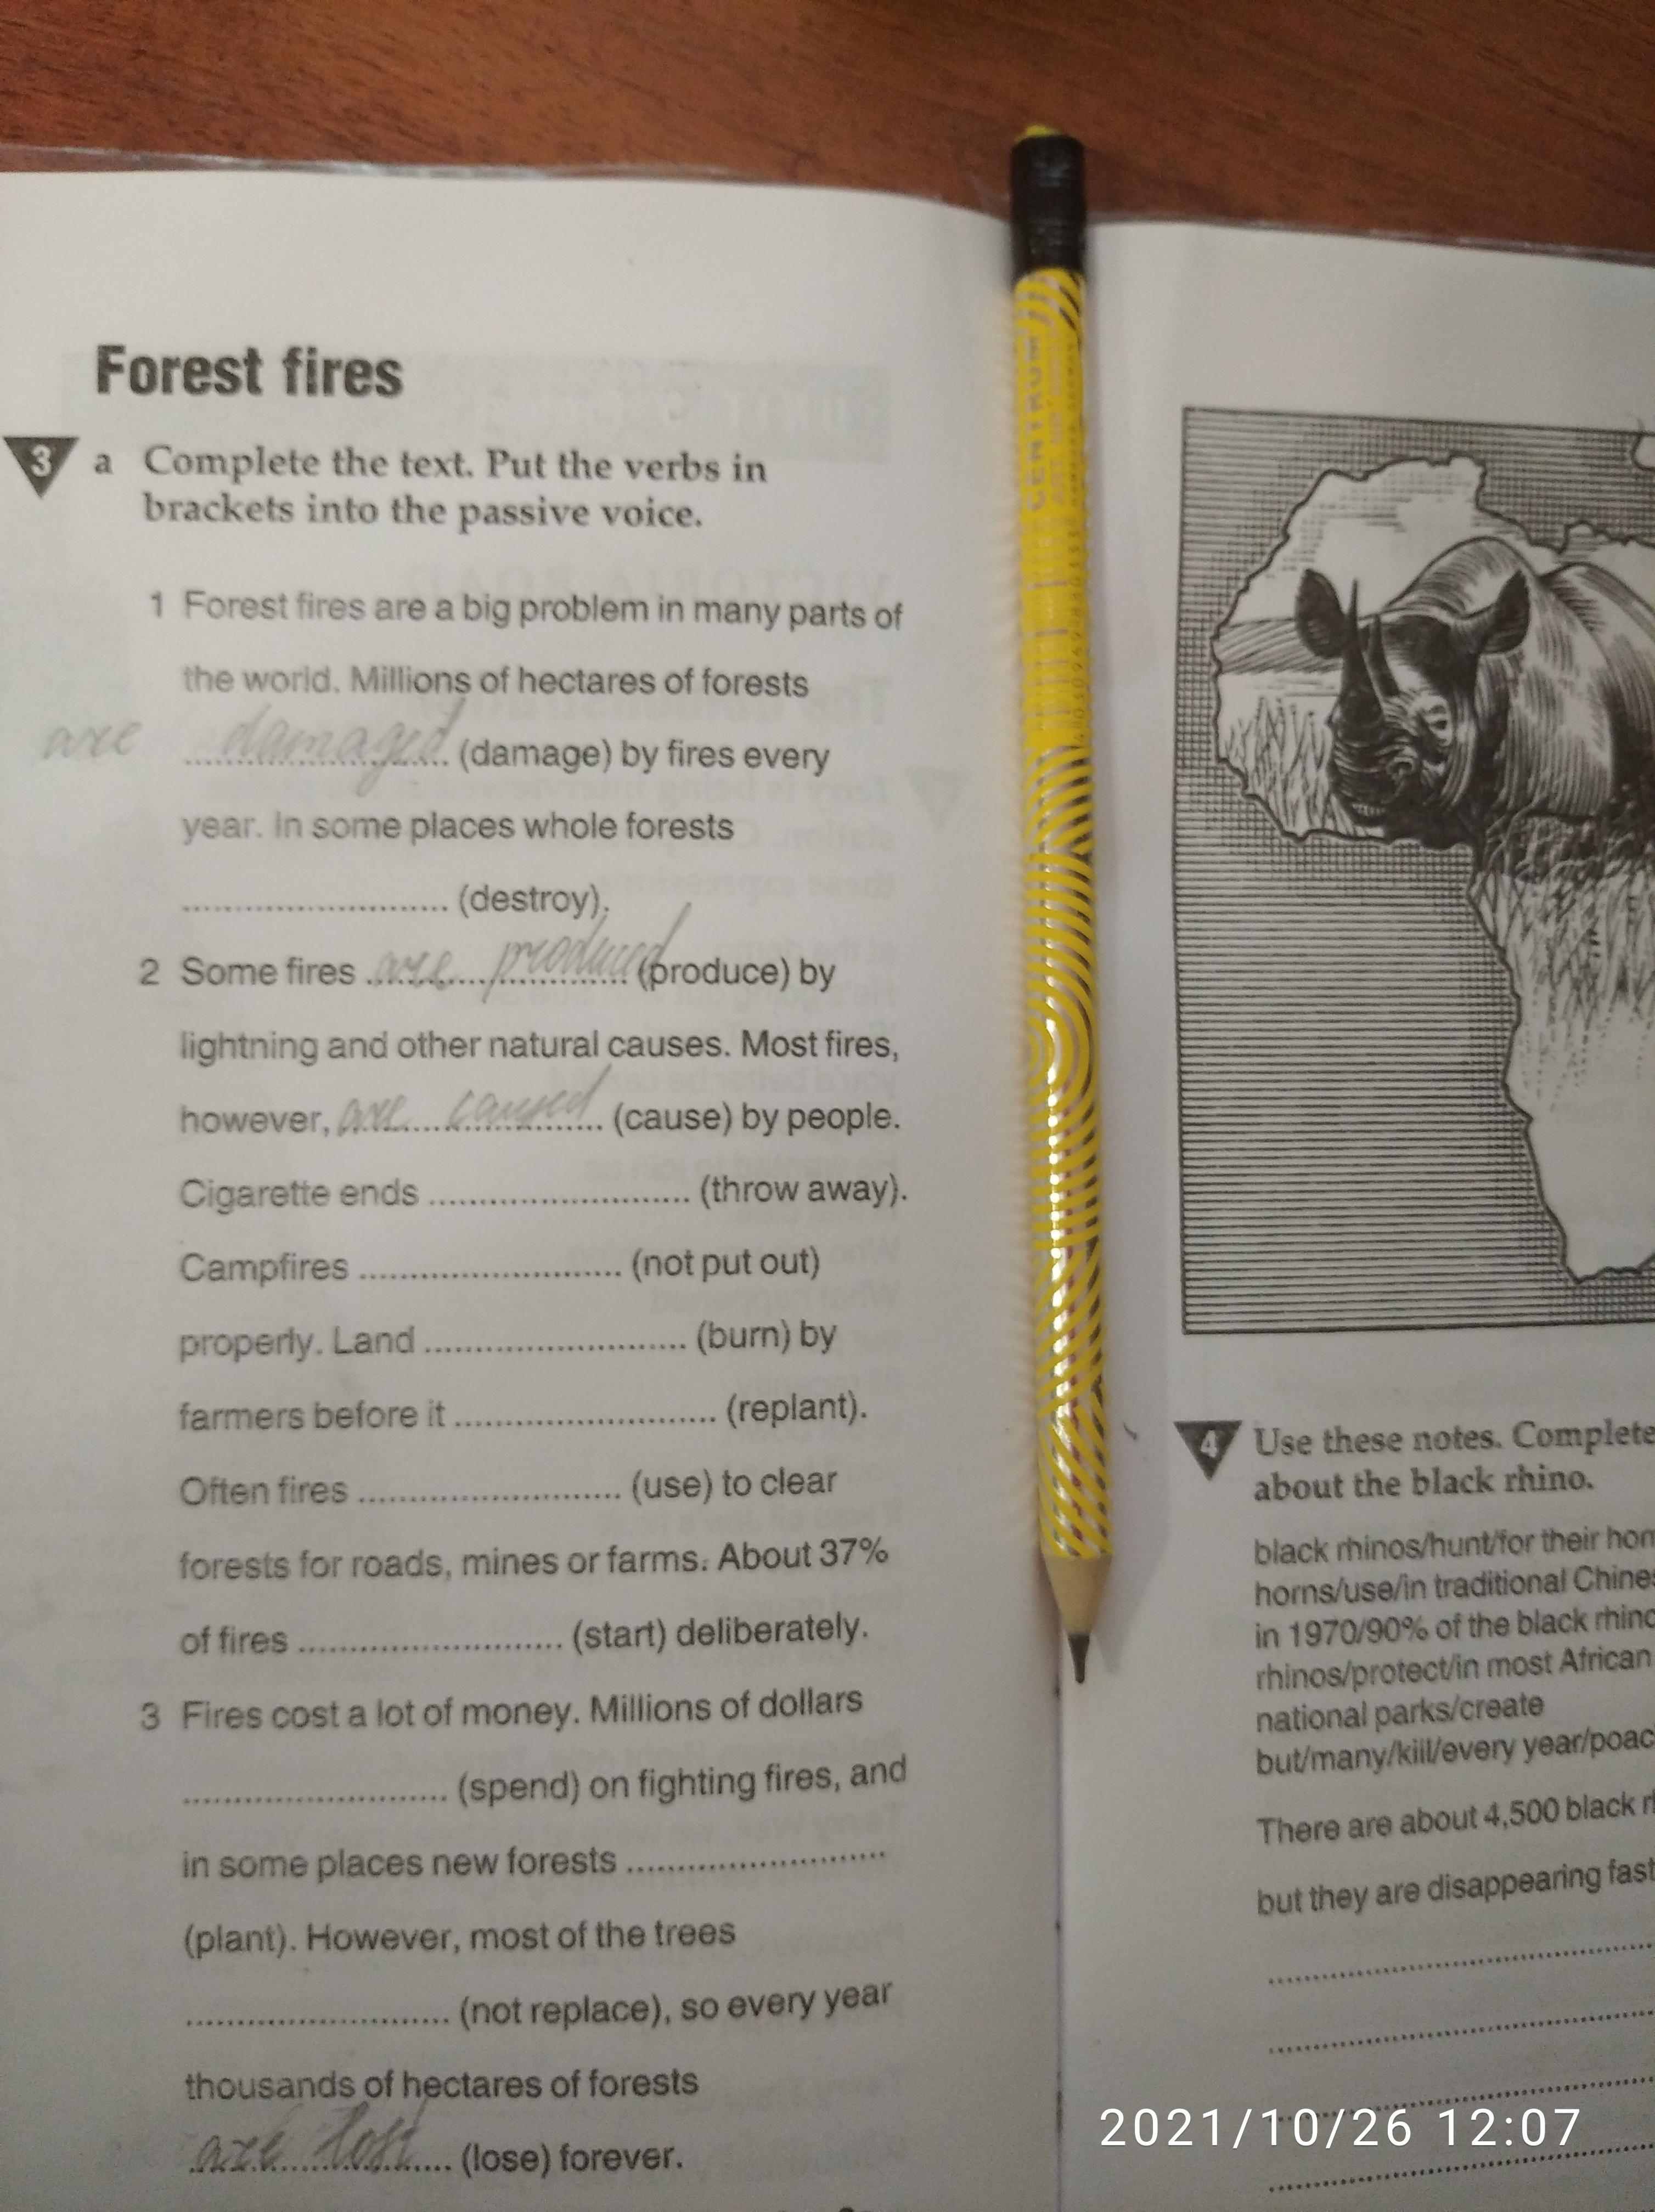 Forest fires
3 a Complete the text. Put the verbs in
brackets into the passive voice.
1 Forest fires are a big problem in many parts of
the world. Millions of hectares of forests
are damaged (damage) by fires every
year. In some places whole forests
.......................... (destroy).
2 Some fires are produced (produce) by
lightning and other natural causes. Most fires,
however, are caused (cause) by people.
Cigarette ends .......................... (throw away).
Campfires .......................... (not put out)
properly. Land .......................... (burn) by
farmers before it .......................... (replant).
Often fires .......................... (use) to clear
forests for roads, mines or farms. About 37%
of fires .......................... (start) deliberately.
3 Fires cost a lot of money. Millions of dollars
.......................... (spend) on fighting fires, and
in some places new forests ..........................
(plant). However, most of the trees
.......................... (not replace), so every year
thousands of hectares of forests
are lost (lose) forever.
CENTRUM
4 Use these notes. Complete
about the black rhino.
black rhinos/hunt/for their
horns/use/in traditional
in 1970/90% of the black
rhinos/protect/in most African
national parks/create
but/many/kill/every
There are about 4,500 black
but they are disappearing fast
2021/10/26 12:07